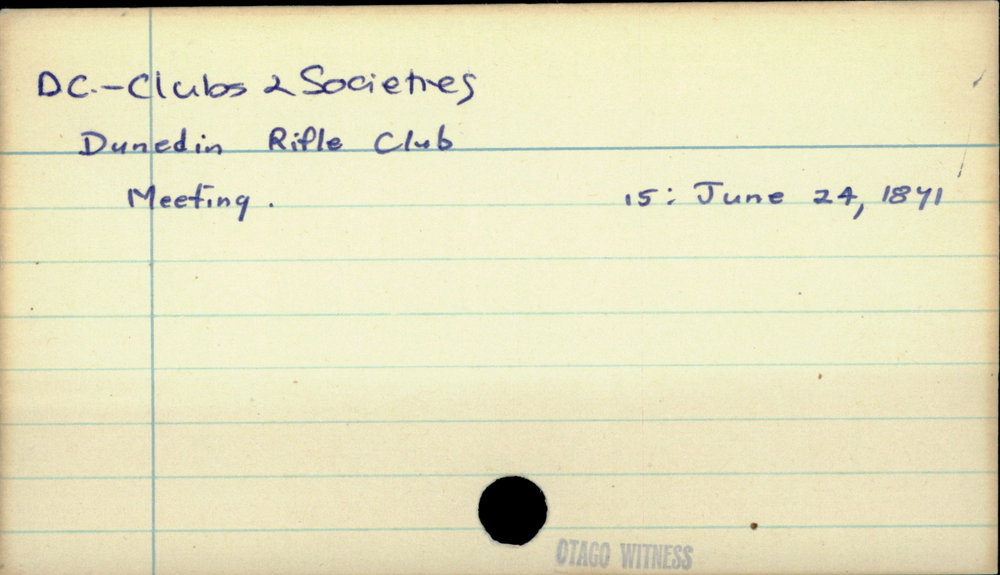 DC.-Clubs & Societies
Dunedin Rifle Club
Meeting. 15: June 24, 1871
OTAGO WITNESS